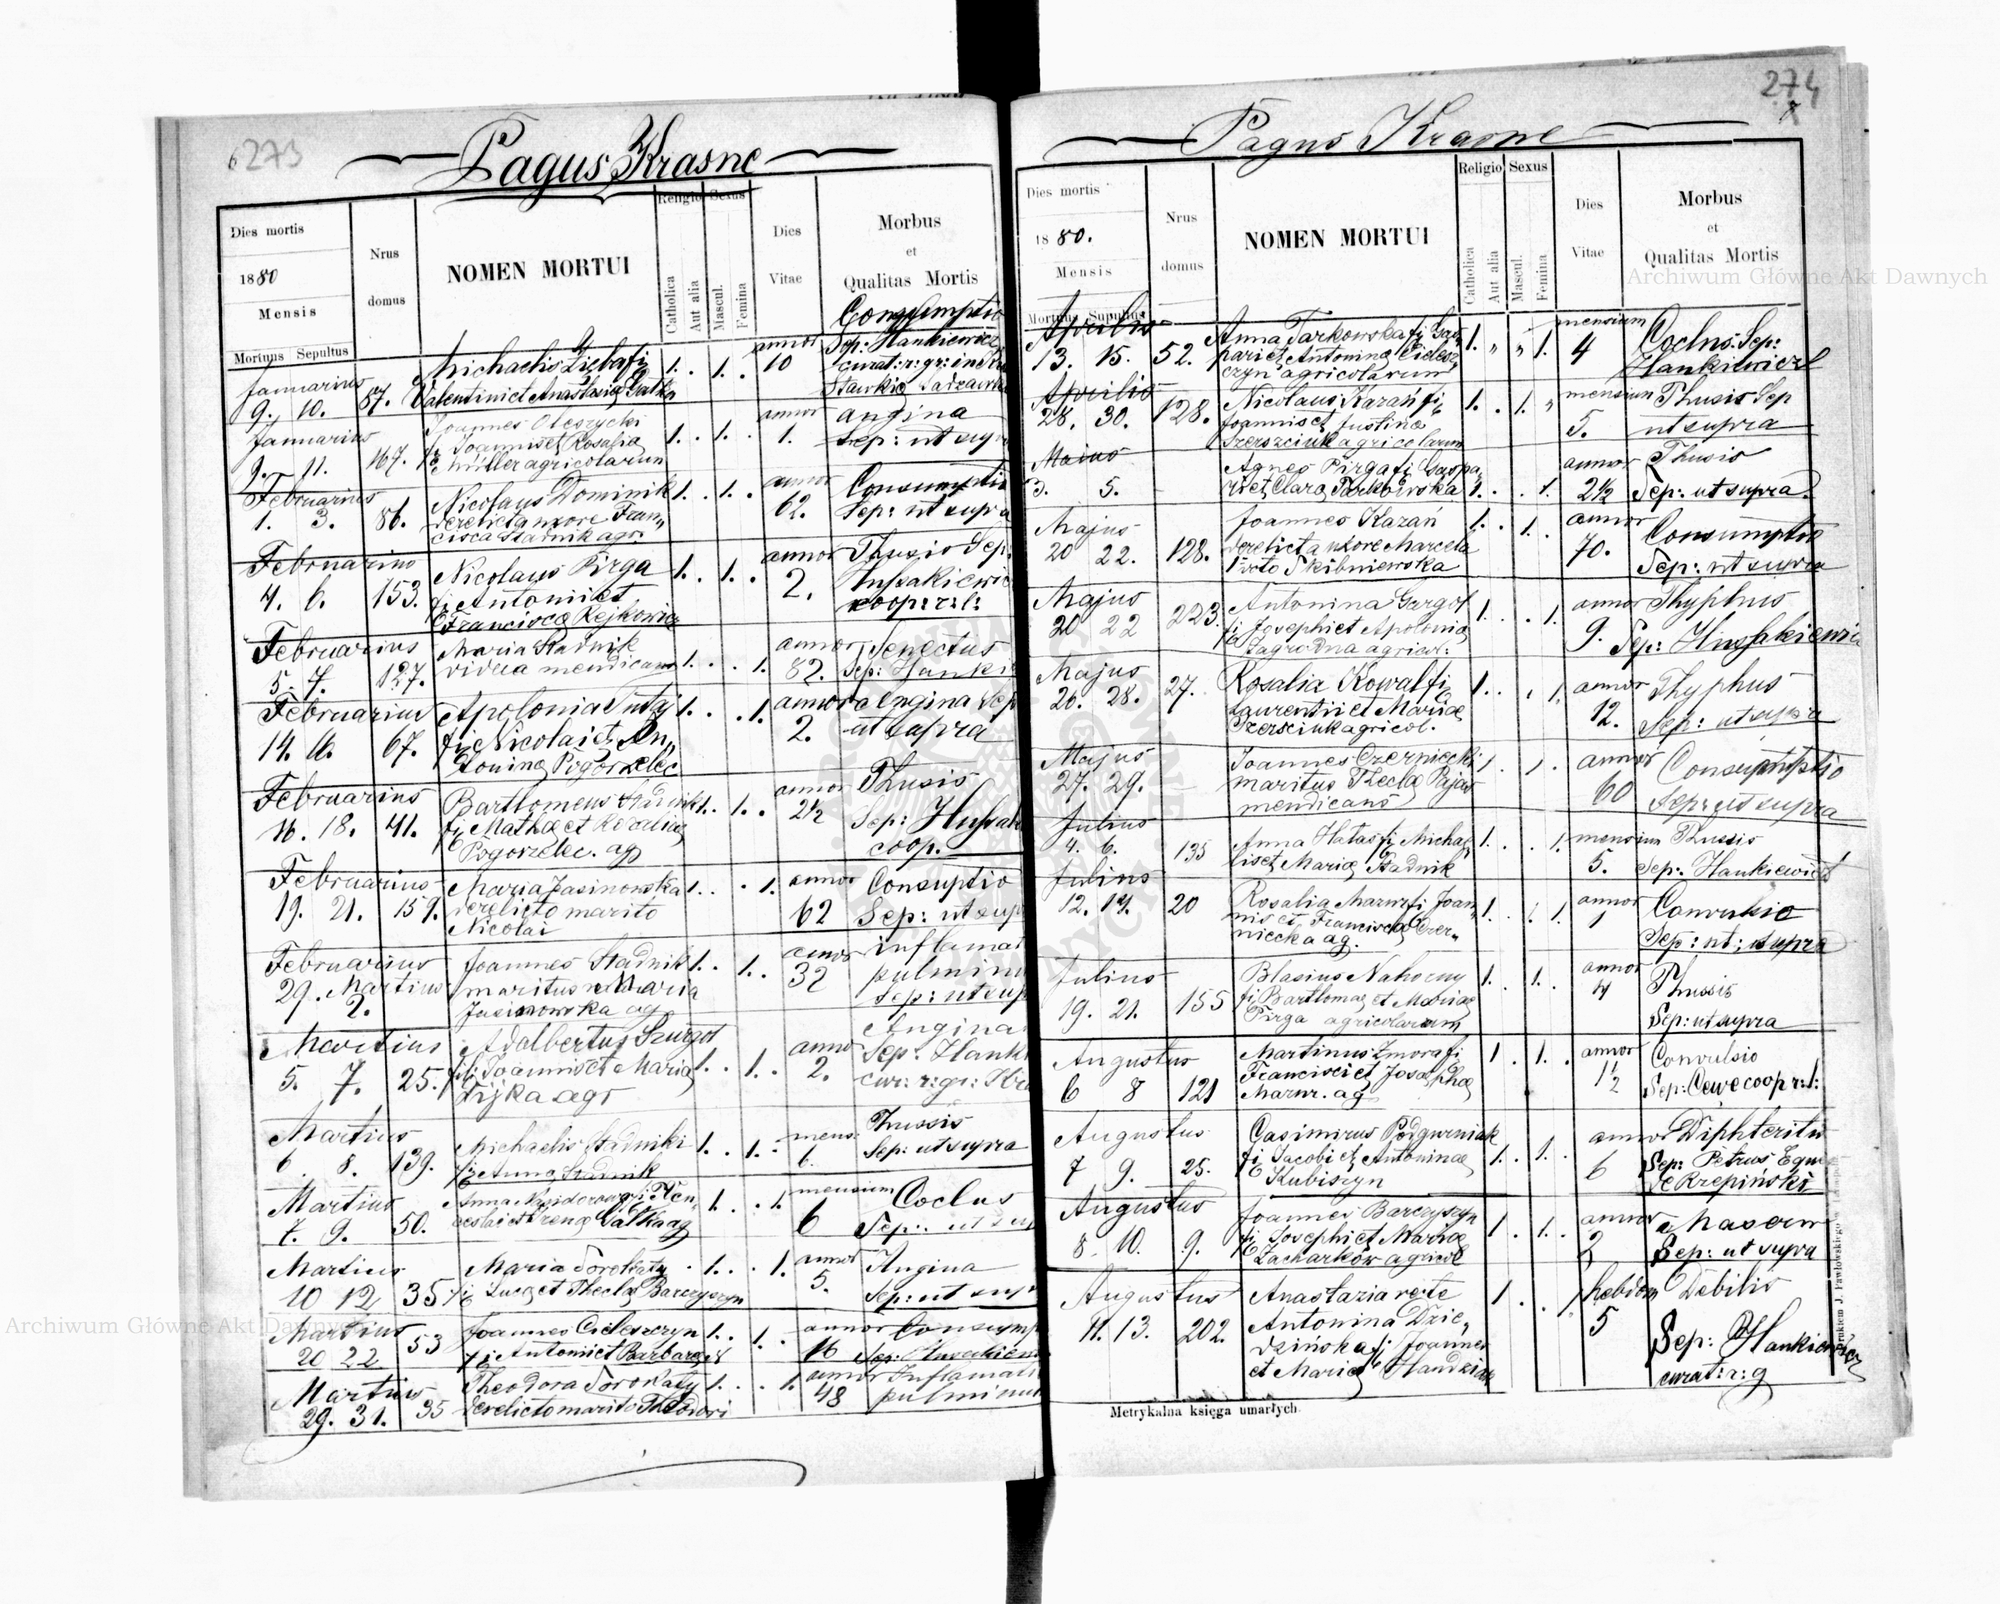 273
Pagus Krasne
Dies mortis
1880
Mensis
Mortuus Sepultus
Nrus
domus
NOMEN MORTUI
Religio
Catholica
Aut alia
Sexus
Mascul.
Femina
Dies
Vitae
Morbus
et
Qualitas Mortis
Januarius
9. 10. 87.
Michaelis
Valentini et Anastasia
1. 1.
annor
10
Consumptio
Sep: Hankiewicz
curat: r: gr: in
Januarius
9. 11. 167.
Joannes Oleszycki
fi Joannis et Rosalia
Müller agricolarum
1. 1.
annor
1.
angina
Sep: ut supra
Februarius
1. 3. 86.
Nicolaus Dominik
derelicta uxore Fran„
cisca Stadnik agr
1. 1.
annor
62.
Consumptio
Sep: ut supra
Februarius
4. 6. 153.
Nicolaus Pirga
fi Antoni et
Francisca
1. 1.
annor
2.
Thusis Sep:
coop: r: l:
Februarius
5. 7. 127.
Maria Stadnik
vidua mendicans
1. 1.
annor
82.
Senectus
Sep: Hanki
Februarius
14. 16. 67.
Apolonia
fi Nicolai et An„
tonina Pogorzelec
1. 1.
annor
2.
angina Sep
ut supra
Februarius
16. 18. 41.
Bartlomeus Stadnik
fi Mathæ et Rosalia
Pogorzelec. ag
1. 1.
annor
2½
Thusis
Sep:
coop.
Februarius
19. 21. 159.
Maria Jasinowska
derelicto marito
Nicolai
1. 1.
annor
62
Consuptio
Sep: ut sup
Februarius
29. Martius
2.
Joannes Stadnik
maritus Maria
Jasinowska ag
1. 1.
annor
32
inflamat
pulminu
Sep: ut sup
Martius
5. 7. 25.
Adalbertus Szurgot
fi Joannis et Maria
Fijka agr
1. 1.
annor
2.
Angina
Sep: Hanki
cur: r: gr: Kra
Martius
6. 8. 139.
Michaelis Stadnik
fi Anna Stadnik
1. 1.
mens.
6.
Thussis
Sep: ut supra
Martius
7. 9. 50.
Anna
1. 1.
mensium
6
Coclus
Sep: ut sup
Martius
10 12 35
Maria
fi Lucæ et Thecla Barczyszyn
1. 1.
annor
5.
Angina
Sep: ut sup
Martius
20 22 53
Joannes Cieleszczyn
fi Antoni et Barbara
1. 1.
annor
16
Consump
Martius
29. 31. 35
Theodora
derelicto marito Theodori
1. 1.
annor
48
Inflamati
pulminu
274
Pagus Krasne
Dies mortis
1880.
Mensis
Mortuus Sepultus
Nrus
domus
NOMEN MORTUI
Religio
Catholica
Aut alia
Sexus
Mascul.
Femina
Dies
Vitae
Morbus
et
Qualitas Mortis
Aprilis
13. 15. 52.
Anna Tarkowska fi Gas„
pari et Antonina Cielesz„
czyn agricolarum
1. „ „ 1.
mensium
4
Coclus. Sep:
Hankiewicz
Aprilis
28. 30. 128.
Nicolaus Kazań fi
Joannis et Justina
Szerszeniuk agricolarum
1. 1. „
mensium
5.
Thusis Sep
ut supra
Maius
3. 5. -
Agnes Pirga fi Gaspa„
ri et Clara Tarkowska
1. 1.
annor
2½
Thusis
Sep: ut supra.
Majus
20 22. 128.
Joannes Kazań
derelicta uxore Marcela
1voto Skibniewska
1. 1.
annor
70.
Consumptio
Sep: ut supra
Majus
20 22 223.
Antonina Gargol
fi Josephi et Apolonia
Zagrodna agricol:
1. 1.
annor
9.
Thyphus
Sep:
Majus
26. 28. 27.
Rosalia Kowal fi
Laurenti et Mariæ
agricol.
1. 1.
annor
12.
Thyphus
Sep: ut supra
Majus
27. 29. -
Joannes Czerniecki
maritus Theclæ Pajas
mendicans
1. 1.
annor
60
Consumptio
Sep: ut supra
Julius
4. 6. 135
Anna Hatas fi Michae„
lis et Maria Stadnik
1. 1.
mensium
5.
Thussis
Sep: Hankiewicz
Julius
12. 14. 20
Rosalia Mazur fi Joan„
nis et Francisca Czer„
niecka ag.
1. 1.
annor
1
Convulsio
Sep: ut: supra
Julius
19. 21. 155
Blasius Nahorny
fi Bartlomæ et Mariæ
Pirga agricolarum
1. 1.
annor
4
Thussis
Sep: ut supra
Augustus
6 8 121
Martinus Zmora fi
Francisci et Josephæ
Mazur. ag
1. 1.
annor
1½
Convulsio
Sep: coop r: l:
Augustus
7 9. 25.
Casimirus Podgurniak
fi Jacobi et Antoninæ
Kubiszyn
1. 1.
annor
6
Diphteritis
Sep: Petrus
de Krzepiński
Augustus
8. 10. 9.
Joannes Barczyszyn
fi Josephi et Mariæ
Zacharków agricol
1. 1.
annor
2
Sep: ut supra
Augustus
11. 13. 202.
Anastazia recte
Antonina Dzie„
dzińska fi Joannes
et Maria
1. 1.
hebdom
5
Debilis
Sep: Hankiewicz
curat: r: g
Metrykalna księga umarłych.
Drukiem J. Pawłowskiego
Archiwum Główne Akt Dawnych
Archiwum Główne Akt Dawnych